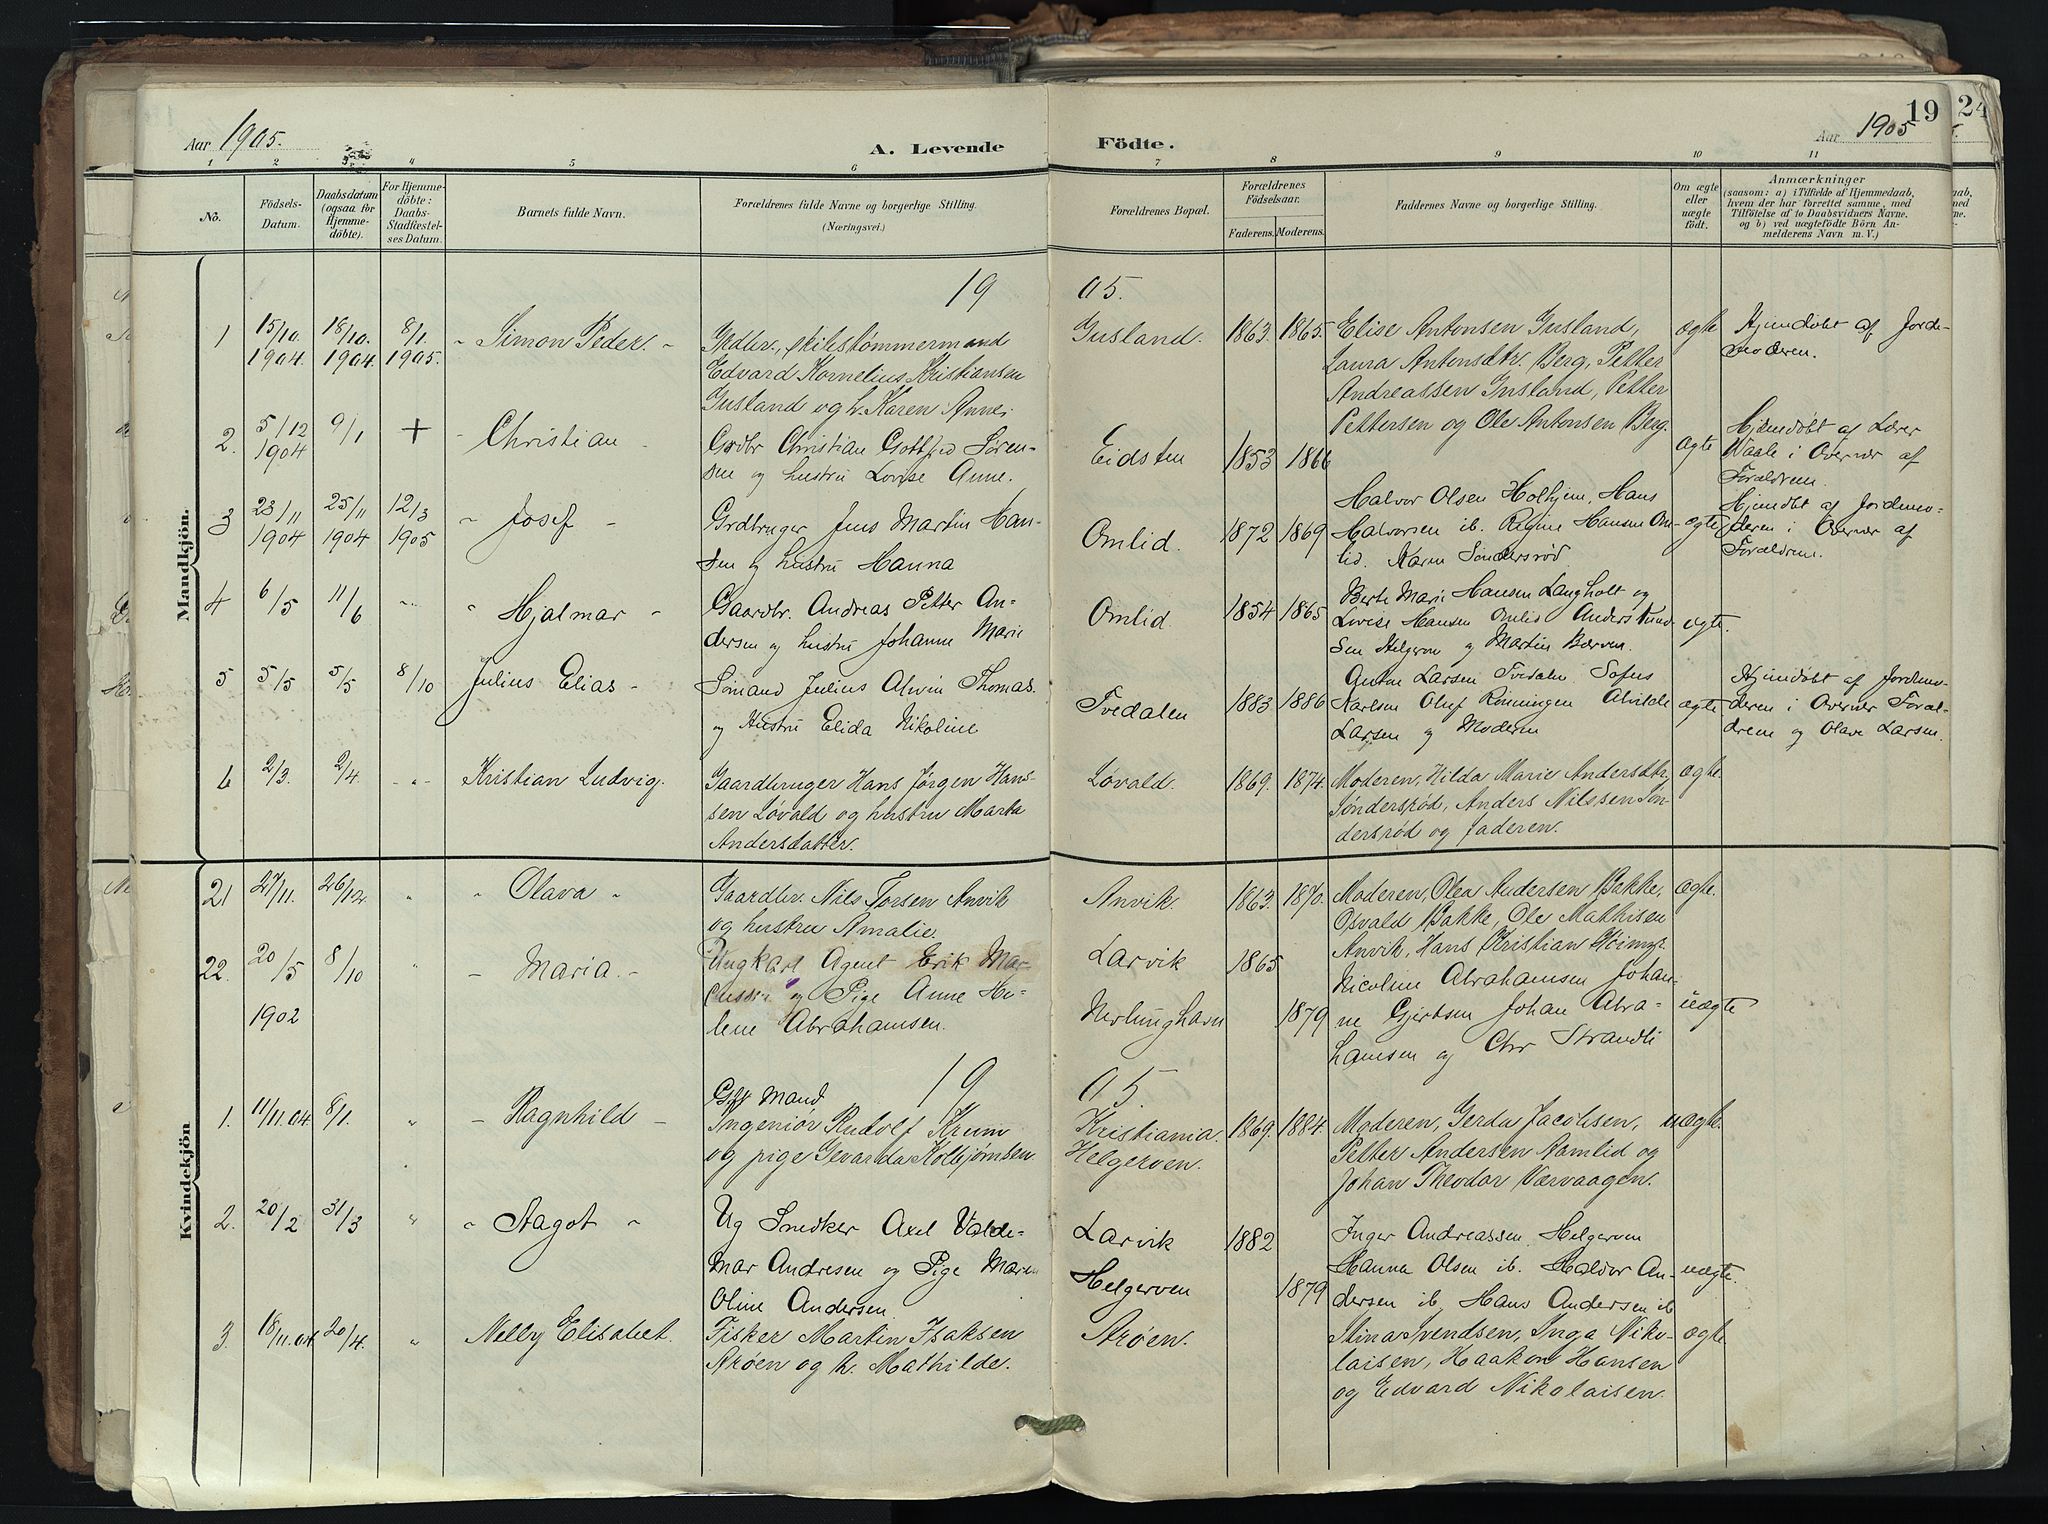 19 24
Aar 1905. A. Levende Födte. Aar 1905
1 2 3 4 5 6 7 8 9 10 11
No.
Födsels-
Datum.
Daabsdatum
(ogsaa for
Hjemme-
döbte).
For Hjemme-
döbte:
Daabs-
Stadfæstel-
ses Datum.
Barnets fulde Navn.
Forældrenes fulde Navne og borgerlige Stilling.
(Næringsvei.)
Forældrenes Bopæl.
Forældrenes
Födselsaar.
Faderens. Moderens.
Faddernes Navne og borgerlige Stilling.
Om ægte
eller
uægte
födt.
Anmærkninger
(saasom: a) i Tilfælde af Hjemmedaab,
hvem der har forrettet samme, med
Tilföielse af to Daabsvidners Navne.
og b) ved uægtefödte Börn An-
melderens Navn m. V.)
Mandkjön.
19 05.
1 15/10 1904 18/10. 1904. 8/1 1905. - Simon Peder. -
Grdbr., skibstømmermand
Edvard Kornelius Kristiansen
Gusland og h. Karen Anne.
Gusland. 1863. 1865.
Elise Antonsen Gusland,
Laura Antonsdtr. Berg, Petter
Andreassen Gusland, Petter
Pettersen og Ole Antonsen Berg.
ægte
Hjemdøbt af Jorde-
moderen.
2. 5/12 1904 9/1 + - Christian -
Grdbr Christian Gottfred Sören-
sen og hustru Lovise Anne.
Eidsten 1853 1866
ægte
Hjemdøbt af Lærer
Vaale i Overvær af
Forældrene.
3 23/11 1904 25/11 1904 12/3 1905 - Josef -
Grdbruger Jens Martin Han-
sen og hustru Hanna
Omlid. 1872 1869
Halvor Olsen Holhjem, Hans
Halvorsen ib. Regine Hansen Om-
lid. Karen Sondersrød
ægte
Hjemdøbt af Jordemo-
deren i Overvær af
Forældrene.
4 6/5 11/6 - " Hjalmar -
Gaardbr. Andreas Petter An-
dersen og hustru Johanne Marie
Omlid. 1854 1865
Berte Marie Hansen Langholt og
Lovise Hansen Omlid Anders Knud-
sen Helgeroa og Martin Barven.
ægte.
5 5/5 5/5 8/10 Julius Elias -
Sömand Julius Alvin Thomas.
og Hustru Elida Nikoline
Tvedalen 1883 1886
Anton Larsen Tvedalen. Sofus
Karlsen Oluf Rönningen Alvilde
Larsen og Moderen
ægte
Hjemdøbt af Jordemo-
deren i Overvær Foræl-
drene og Olave Larsen.
6 2/3. 2/4 - Kristian Ludvig.
Gaardbruger Hans Jørgen Han-
sen Løvald og hustru Marta
Andersdatter.
Løvald. 1869. 1874.
Moderen, Hilda Marie Andersdtr.
Søndersrød, Anders Nilssen Søn-
dersrød og Faderen.
ægte
Kvindekjön
21 27/11. 26/12 " - Olava -
Gaardbr. Nils Torsen Anvik
og hustru Amalie
Anvik. 1863. 1870.
Moderen, Olea Andersen Bakke,
Osvald Bakke, Ole Mathisen
Anvik, Hans Kristian Höimyr
ægte.
22. 20/5 1902 8/10 " - Maria. -
Ungkarl Agent Erik Mar-
cussen og Pige Anne He-
lene Abrahamsen.
Larvik 1865
Nerlunghavn 1879
Nicoline Abrahamsen Johan-
ne Gjertsen Johan Abra-
hamsen og Chr Strandli
üægte
19 05.
1. 11/11.04 8/1. " - Ragnhild -
Gift Mand
Ingeniør Rudolf Krum
og pige Gevarda Kolbjørnsen
Kristiania. 1869. 1884
Helgerven.
Moderen, Gerda Jacobsen,
Petter Andersen Aamlid og
Johan Theodor Værvaagen.
uægte.
2. 20/2 31/3 " - Aagot -
Ug Snedker Axel Valde-
mar Andresen og Pige Maren
Oline Andersen
Larvik 1882
Helgerven 1879
Inger Andreassen Helgerven
Hanna Olsen ib. Haldor An-
dersen ib Hans Andersen ib
uægte.
3. 18/11.04 20/4. " Nelly Elisabet.
Fisker Martin Isaksen
Arøen og h. Mathilde.
Arøen.
Stina Svendsen, Inga Niko-
laisen, Haakon Hansen
og Edvard Nikolaisen.
ægte